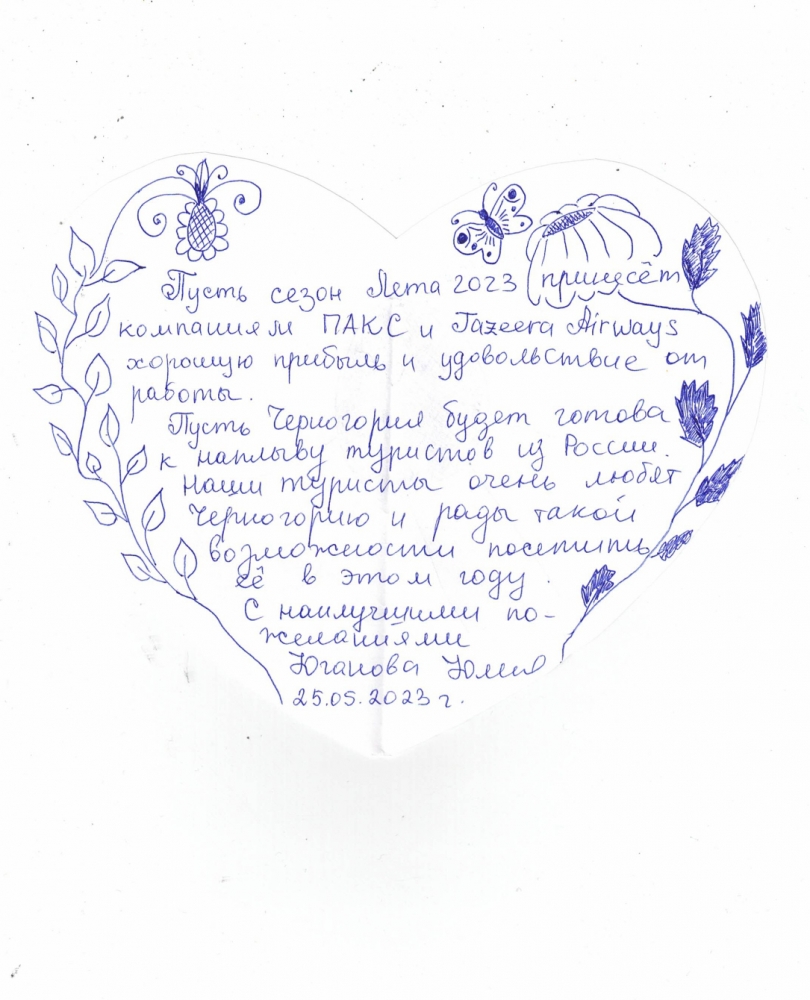 Пусть сезон Лета 2023 принесёт
компаниям ПАКС и Jazeera Airways
хорошую прибыль и удовольствие от
работы.
Пусть Черногория будет готова
к наплыву туристов из России.
Наши туристы очень любят
Черногорию и рады такой
возможности посетить
её в этом году.
С наилучшими по-
желаниями
Юганова Юлия
25.05.2023 г.